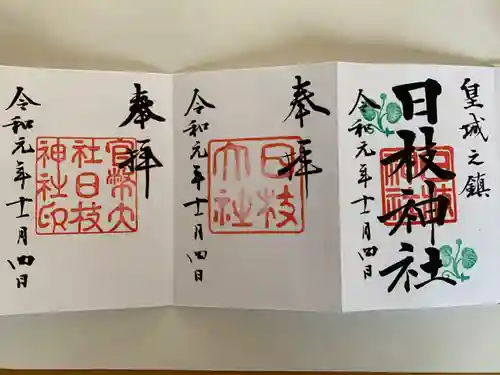 皇城之鎮
日枝神社
令和元年十一月四日
奉拝
日枝
大社
令和元年十一月四日
奉拝
官幣大
社日枝
神社印
令和元年十一月四日